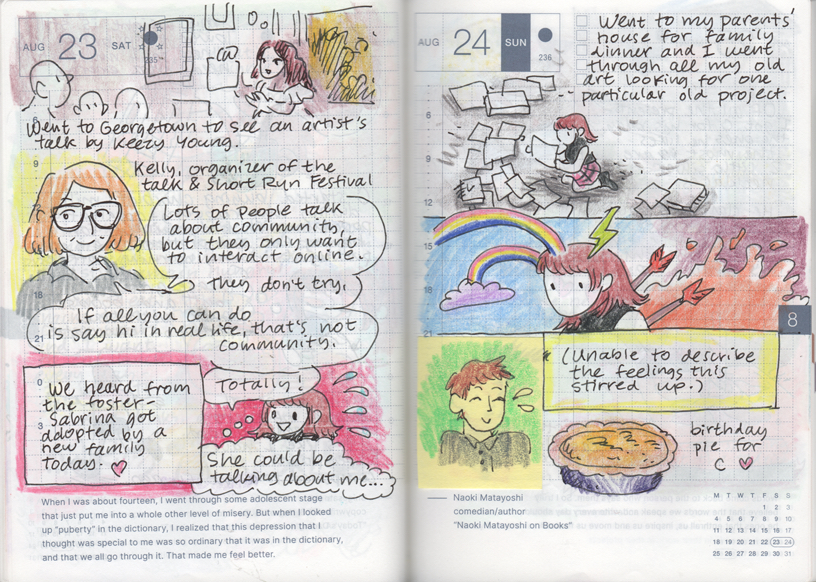 AUG 23 SAT
235
Went to Georgetown to see an artist's
talk by Keezy Young.
Kelly, organizer of the
talk & Short Run Festival
Lots of people talk
about community,
but they only want
to interact online.
They don't try.
If all you can do
is say hi in real life, that's not
community.
We heard from
the foster-
Sabrina got
adopted by a
new family
today. ♡
Totally!
She could be
talking about me...
6
9
18
21
0
3
When I was about fourteen, I went through some adolescent stage
that just put me into a whole other level of misery. But when I looked
up "puberty" in the dictionary, I realized that this depression that I
thought was special to me was so ordinary that it was in the dictionary,
and that we all go through it. That made me feel better.
AUG 24 SUN
236
Went to my parents'
house for family
dinner and I went
through all my old
art looking for one
particular old project.
6
9
12
15
18
21
8
(Unable to describe
the feelings this
stirred up.)
birthday
pie for
C ♡
Naoki Matayoshi
comedian/author
"Naoki Matayoshi on Books"
M T W T F S S
1 2 3
4 5 6 7 8 9 10
11 12 13 14 15 16 17
18 19 20 21 22 23 24
25 26 27 28 29 30 31